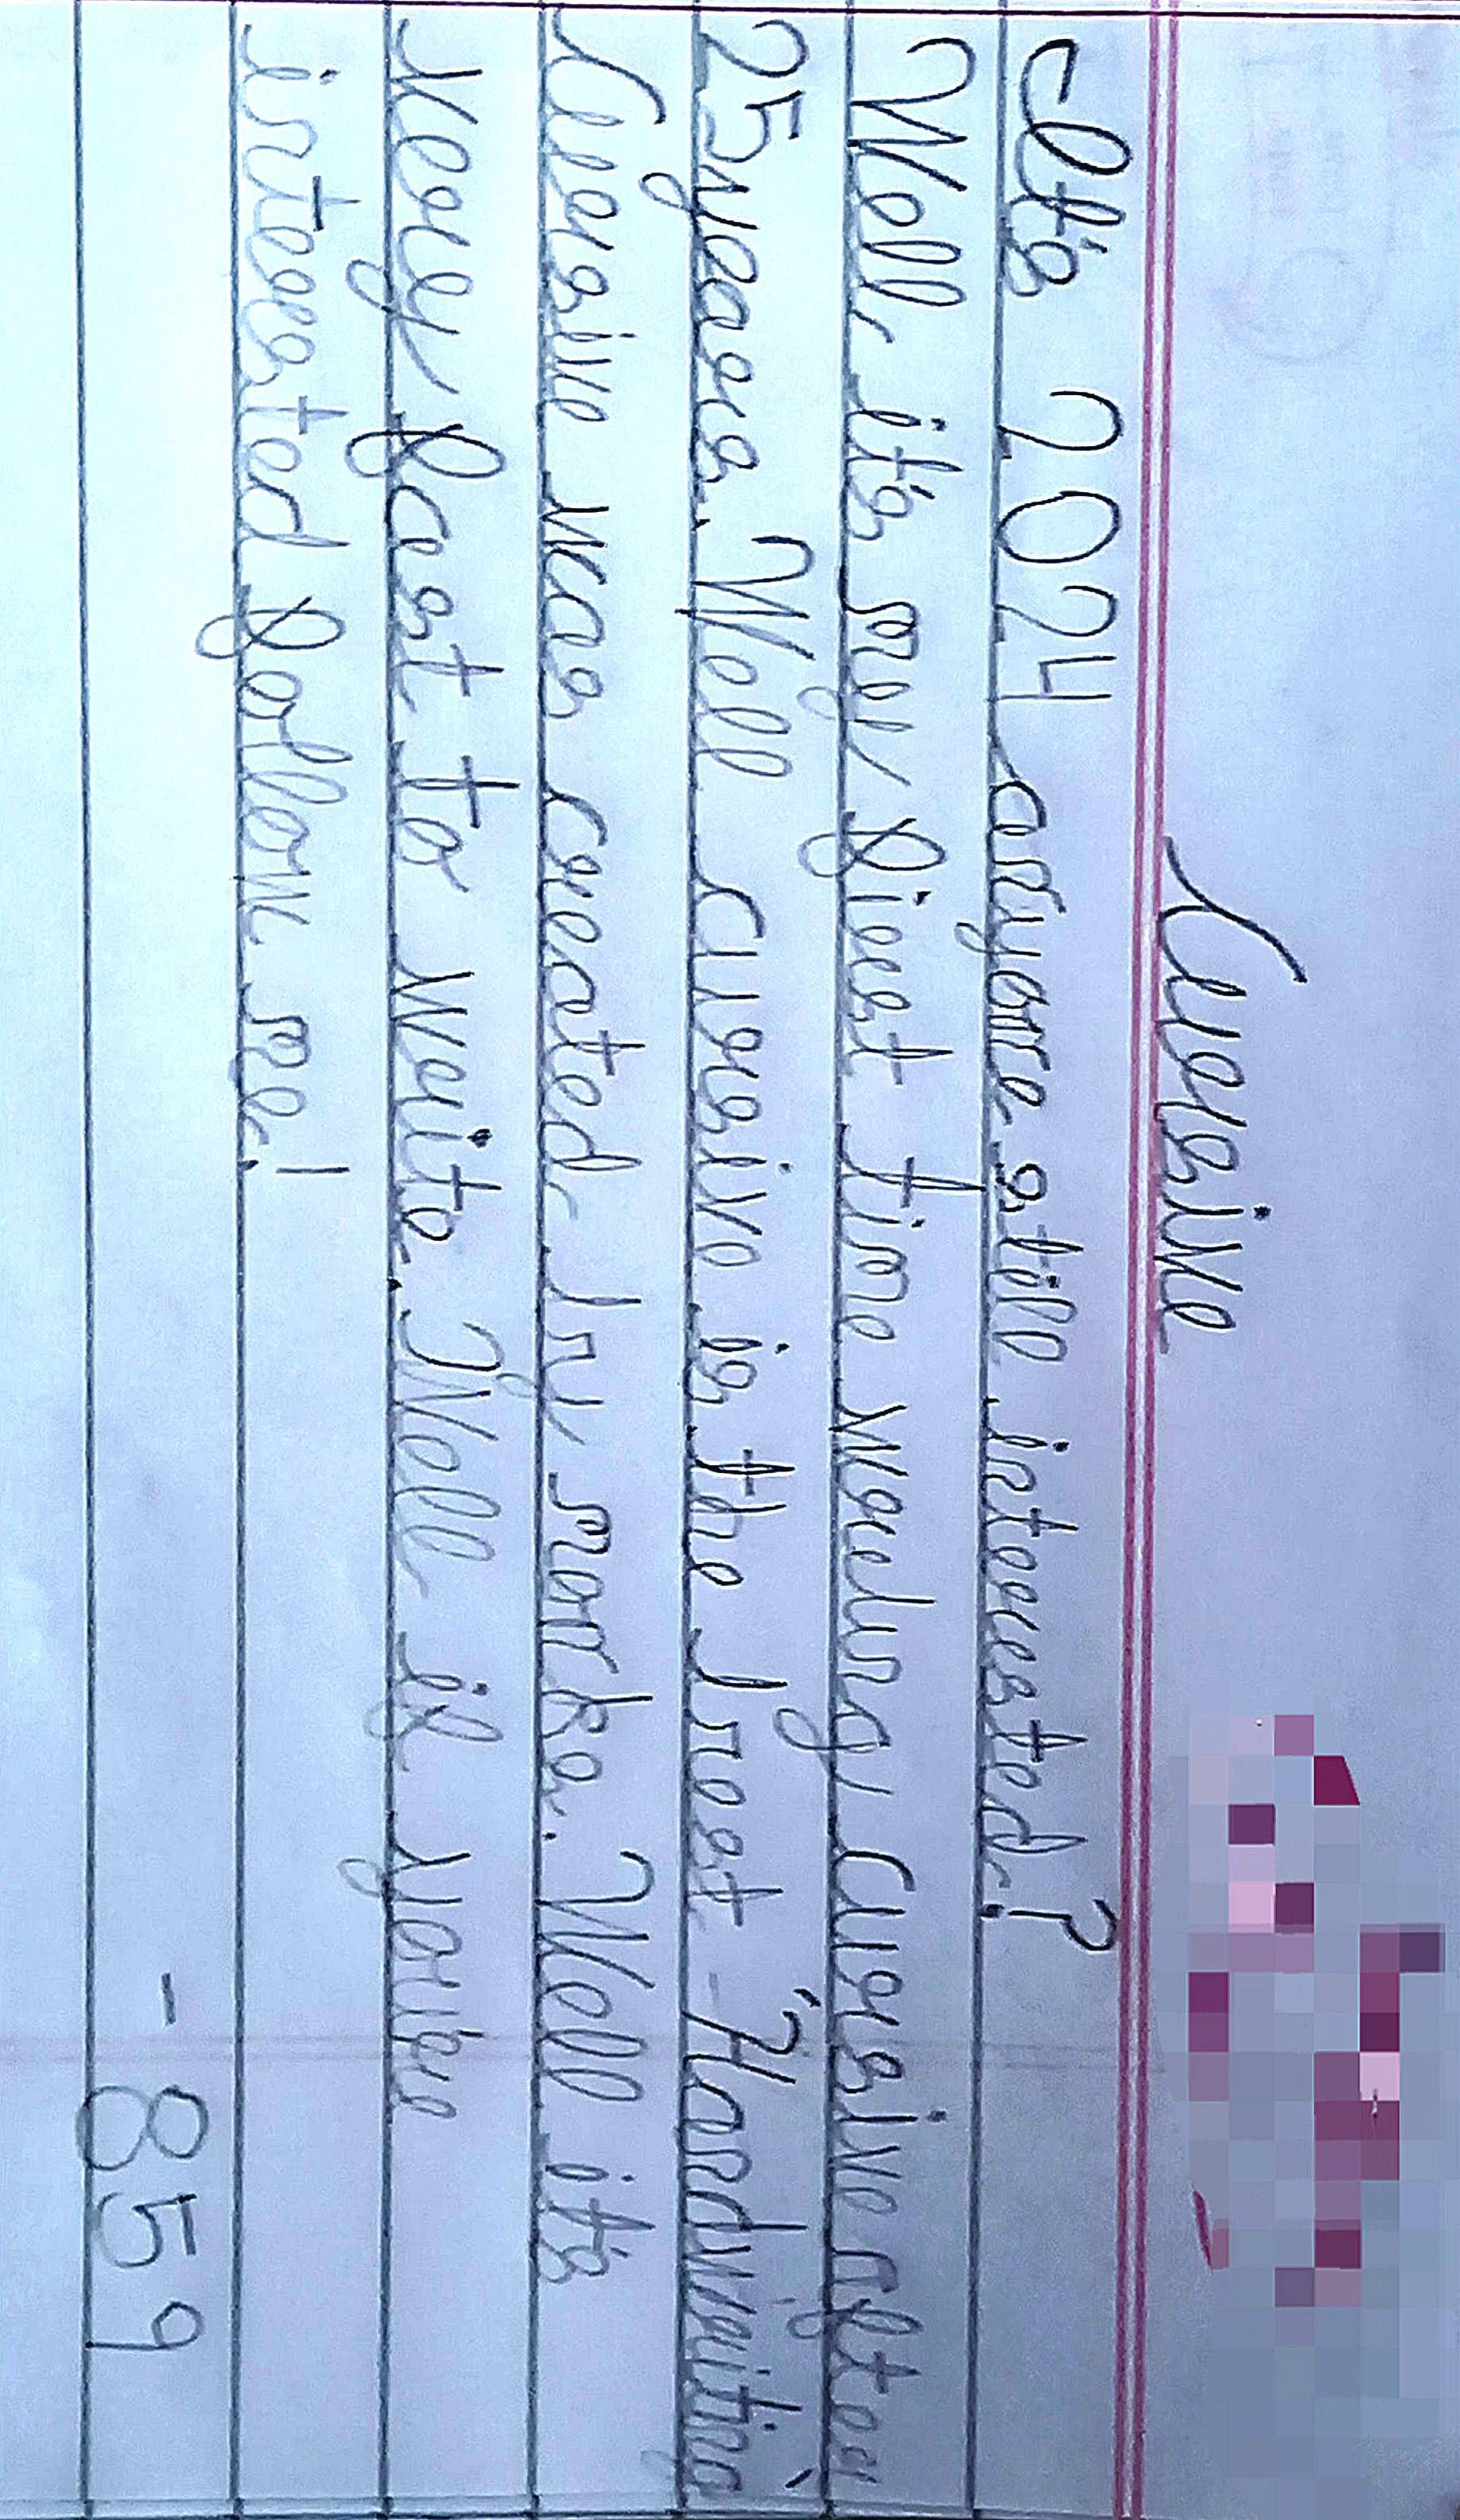 Cursive
It's 2024 anyone still interested?
Well, it's my first time wrulng, Cursive after
25years. Well cursive is the best - "Handwriting"
Cursive was created by monks. Well it's
very fast to write. Well if you're
interested follow me!
- 859